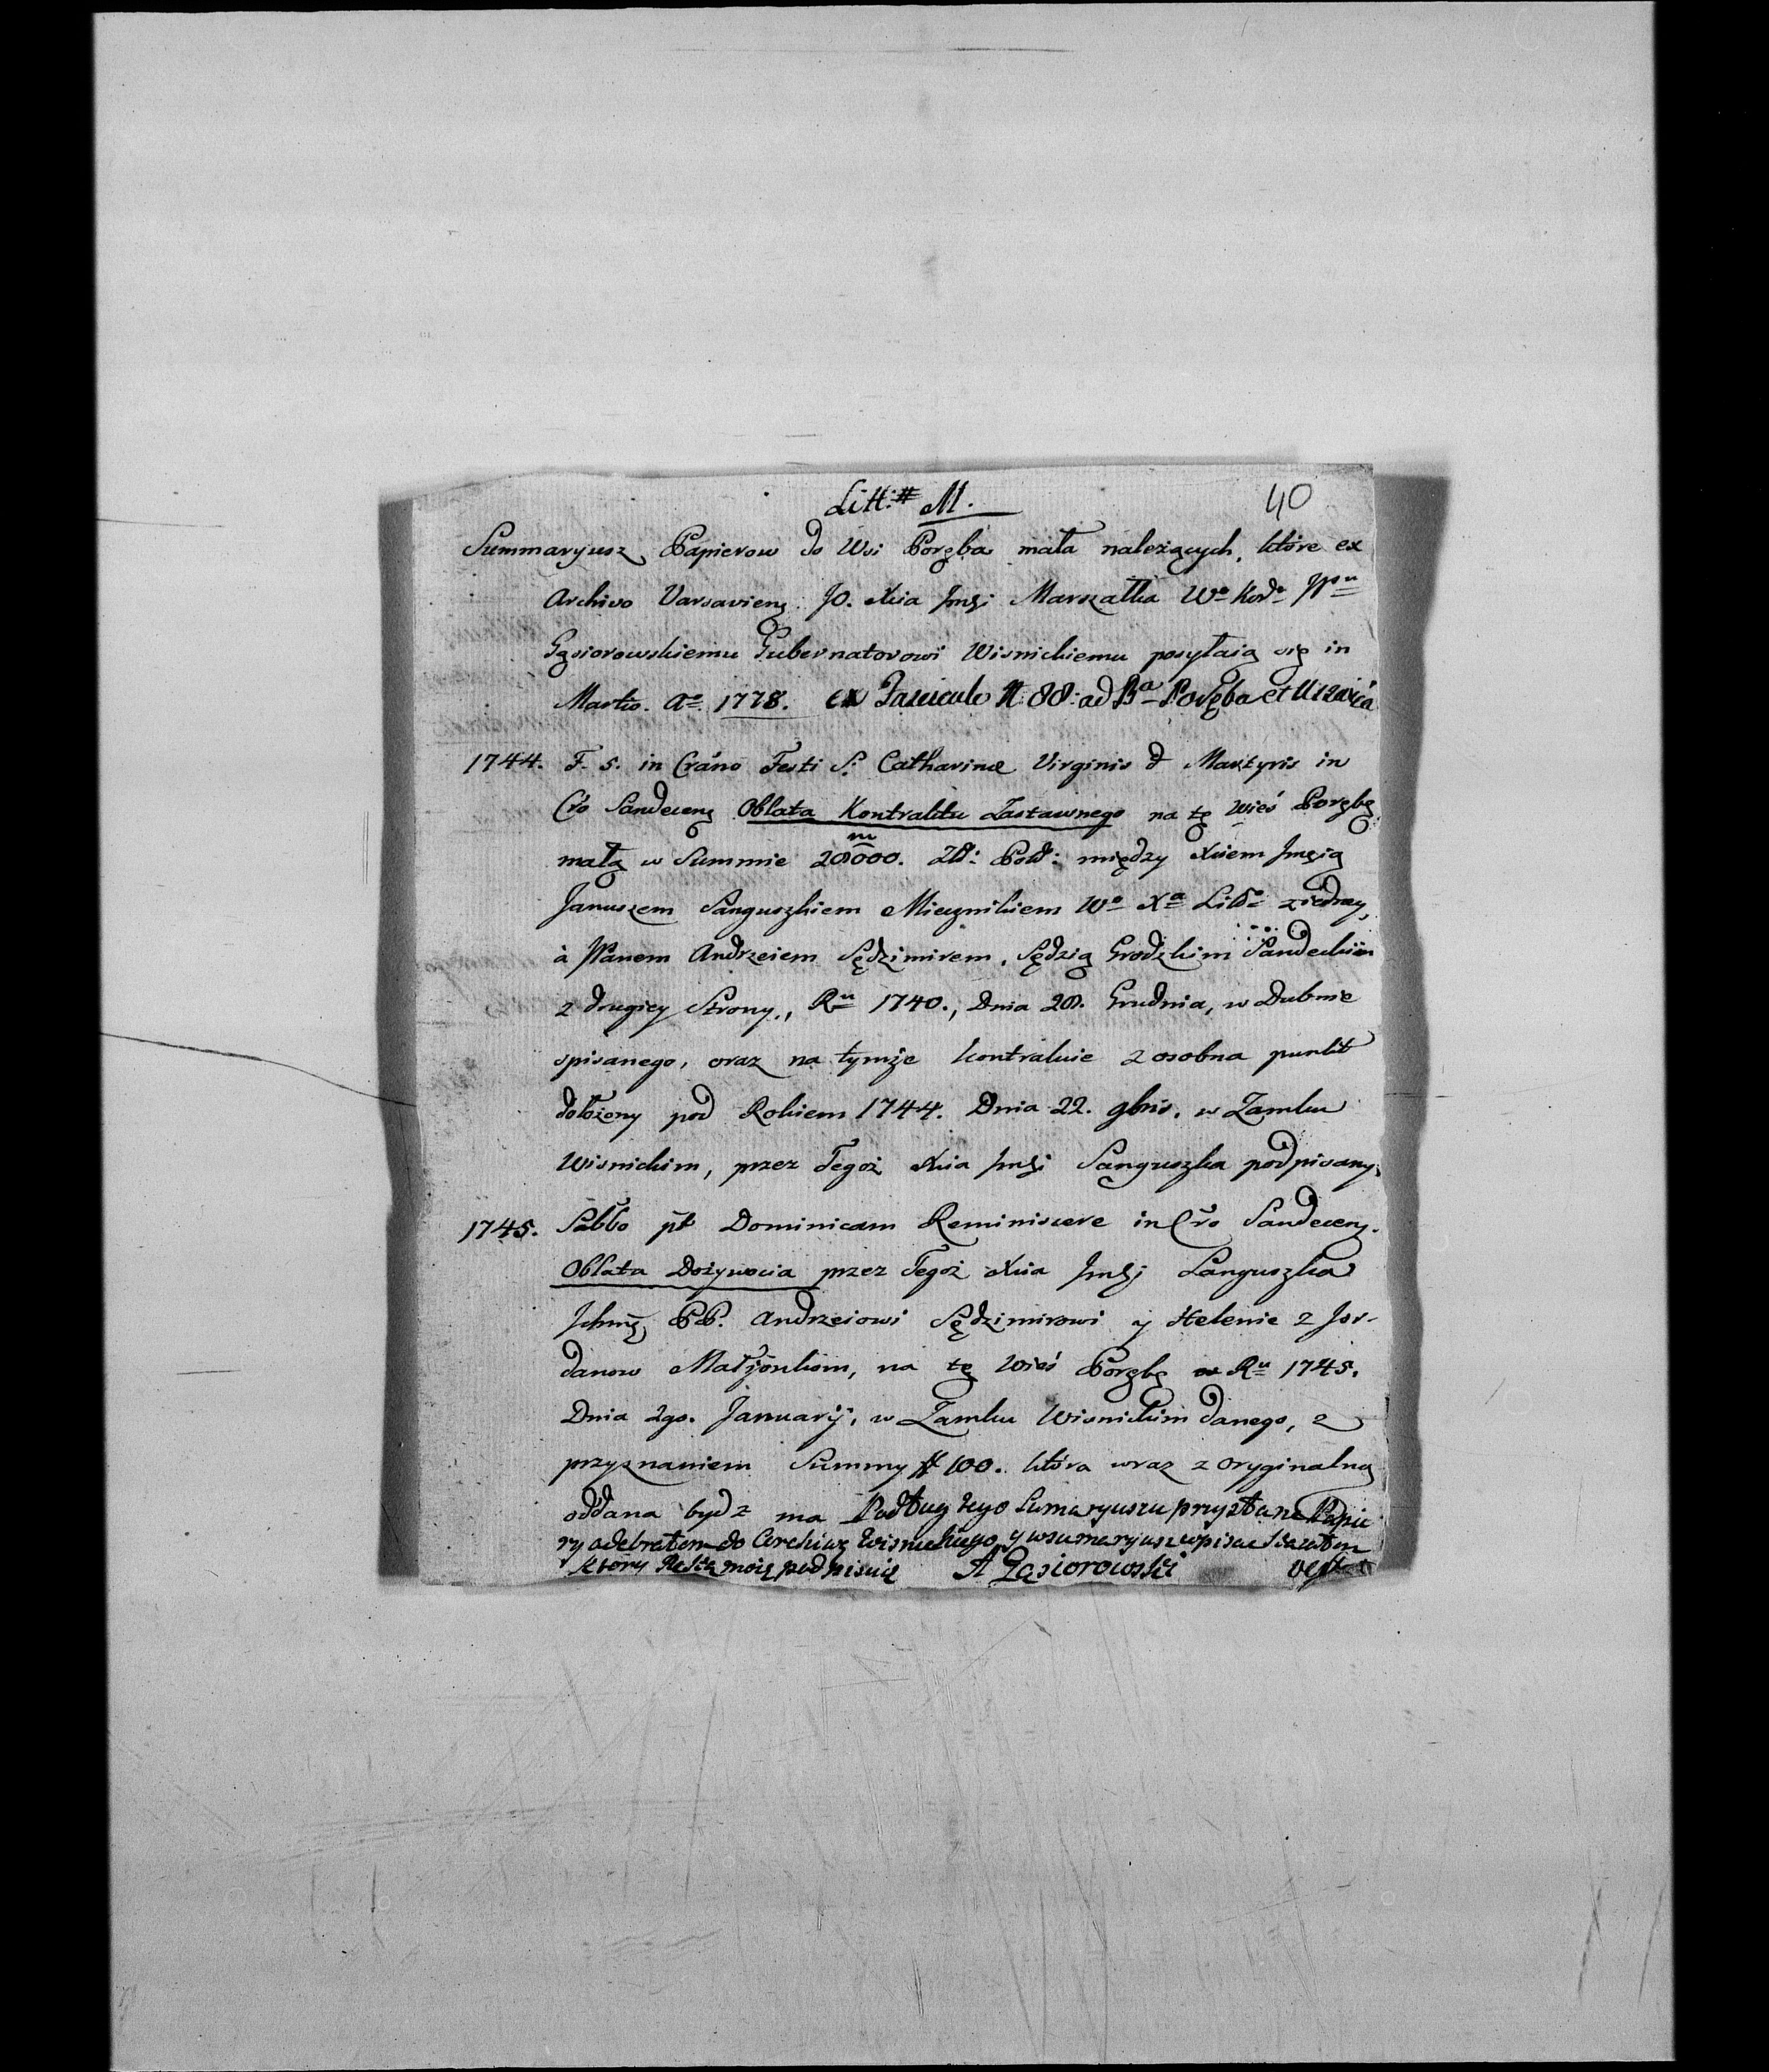 Litt: M.
40
Summaryusz Papierow do Wsi Poręba mała należących, które ex
Archivo Varsavieng JO. Xcia Jmći Marszałka Wo Kodo JPu
Gąsiorowskiemu Gubernatorowi Wisnickiemu posyłaią się in
Martio. Ao 1778. ex Fasciculo N: 88: ad Ba Poręba et Uszwica
1744. F. 5. in Cráno Festi S: Catharinæ Virginis & Martyris in
Cro Sandeceng Oblata Kontraktu Zastawnego na tę Wieś Porębę
małą w Summie 20000. Zł: Pol: między Xciem Jmcią
Januszem Sanguszkiem Miecznikiem Wo Xa Litto z iedney,
à JPanem Andrzeiem Sędzimirem, Sędzią Grodzkim Sandeckim
z drugiey Strony, Ru 1740., Dnia 20. Grudnia, w Dubnie
spisanego, oraz na tymże kontrakcie z osobna punkt
dołożony pod Rokiem 1744. Dnia 22. 9bris. w Zamku
Wisnickim, przez Tegoż Xcia Jmći Sanguszka podpisany.
1745. Sabbo pt Dominicam Reminiscere in Cro Sandeceng.
Oblata Dożywocia przez Tegoż Xcia Jmći Sanguszka
Ichmć PP. Andrzeiowi Sędzimirowi y Helenie z Jor-
danow Małżonkom, na tę Wieś Porębę w Ru 1745.
Dnia 2go. Januarij, w Zamku Wisnickim danego, z
przyznaniem Summy # 100. która wraz z oryginalną
oddana bydź ma Podług tego Sumaryuszu przysłane Papie
ry odebrałem do Archiwę Wisnickiego y w sumaryusz wpisać kazałem
ktory Ręką moią podpisuię A Gąsiorowski